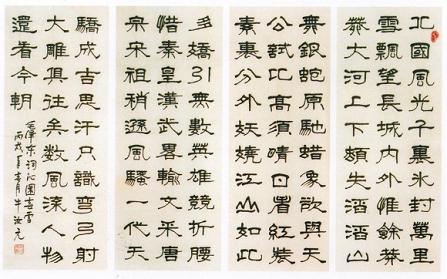 北國風光千里冰封萬里
雪飄望長城內外惟餘莽
莽大河上下頓失滔滔山
舞銀蛇原馳蜡象欲與天
公試比高須晴日看紅裝
素裹分外妖嬈江山如此
多嬌引無數英雄競折腰
惜秦皇漢武略輸文采唐
宗宋祖稍遜風騷一代天
驕成吉思汗只識彎弓射
大雕俱往矣數風流人物
還看今朝
毛澤东詞沁園春雪
丙戌月牛汝元